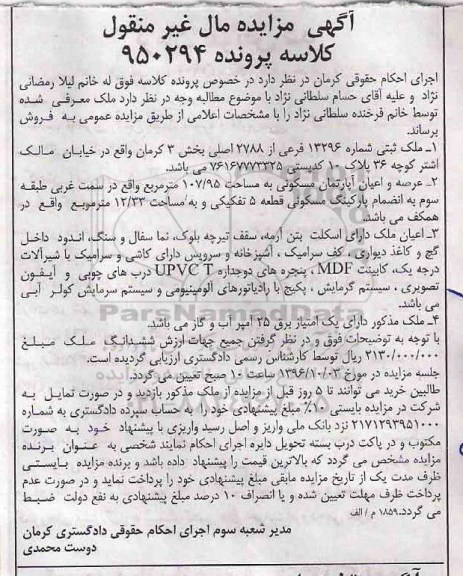 آگهی مزایده مال غیر منقول
کلاسه پرونده ۹۵۰۲۹۴
اجرای احکام حقوقی کرمان در نظر دارد در خصوص پرونده کلاسه فوق له خانم لیلا رمضانی
نژاد و علیه آقای حسام سلطانی نژاد با موضوع مطالبه وجه در نظر دارد ملک معرفی شده
توسط خانم فرخنده سلطانی نژاد را با مشخصات اعلامی از طریق مزایده عمومی به فروش
برساند.
۱ـ ملک ثبتی شماره ۱۳۲۹۶ فرعی از ۲۷۸۸ اصلی بخش ۳ کرمان واقع در خیابان مالک
اشتر کوچه ۳۶ پلاک ۱۰ کدپستی ۷۶۱۶۷۷۷۳۳۲۵ می باشد.
۲ـ عرصه و اعیان آپارتمان مسکونی به مساحت ۱۰۷/۹۵ مترمربع واقع در سمت غربی طبقه
سوم به انضمام پارکینگ مسکونی قطعه ۵ تفکیکی و به مساحت ۱۲/۳۳ مترمربع واقع در
همکف می باشد.
۳ـ اعیان ملک دارای اسکلت بتن آرمه، سقف تیرچه بلوک، نما سفال و سنگ، اندود داخل
گچ و کاغذ دیواری ، کف سرامیک ، آشپزخانه و سرویس دارای کاشی و سرامیک با شیرآلات
درجه یک، کابینت MDF ، پنجره های دوجداره UPVC T درب های چوبی و آیفون
تصویری ، سیستم گرمایش ، پکیج با رادیاتورهای آلومینیومی و سیستم سرمایش کولر آبی
می باشد.
۴ـ ملک مذکور دارای یک امتیاز برق ۲۵ آمپر آب و گاز می باشد.
با توجه به توضیحات فوق و در نظر گرفتن جمیع جهات ارزش ششدانگ ملک مبلغ
۲۱۳۰/۰۰۰/۰۰۰ ریال توسط کارشناس رسمی دادگستری ارزیابی گردیده است.
جلسه مزایده در مورخ ۱۳۹۶/۱۰/۰۳ ساعت ۱۰ صبح تعیین می گردد.
طالبین خرید می توانند تا ۵ روز قبل از مزایده از ملک مذکور بازدید و در صورت تمایل به
شرکت در مزایده بایستی ۱۰٪ مبلغ پیشنهادی خود را به حساب سپرده دادگستری به شماره
۲۱۷۱۲۹۳۹۵۱۰۰۰ نزد بانک ملی واریز و اصل رسید واریزی با پیشنهاد خود به صورت
مکتوب و در پاکت درب بسته تحویل دایره اجرای احکام نمایند شخصی به عنوان برنده
مزایده مشخص می گردد که بالاترین قیمت را پیشنهاد داده باشد و برنده مزایده بایستی
ظرف مدت یک از تاریخ مزایده مابقی مبلغ پیشنهادی خود را پرداخت نماید و در صورت عدم
پرداخت ظرف مهلت تعیین شده و یا انصراف ۱۰ درصد مبلغ پیشنهادی به نفع دولت ضبط
می گردد.۱۸۵۹ م / الف
مدیر شعبه سوم اجرای احکام حقوقی دادگستری کرمان
دوست محمدی
ParsNamadData